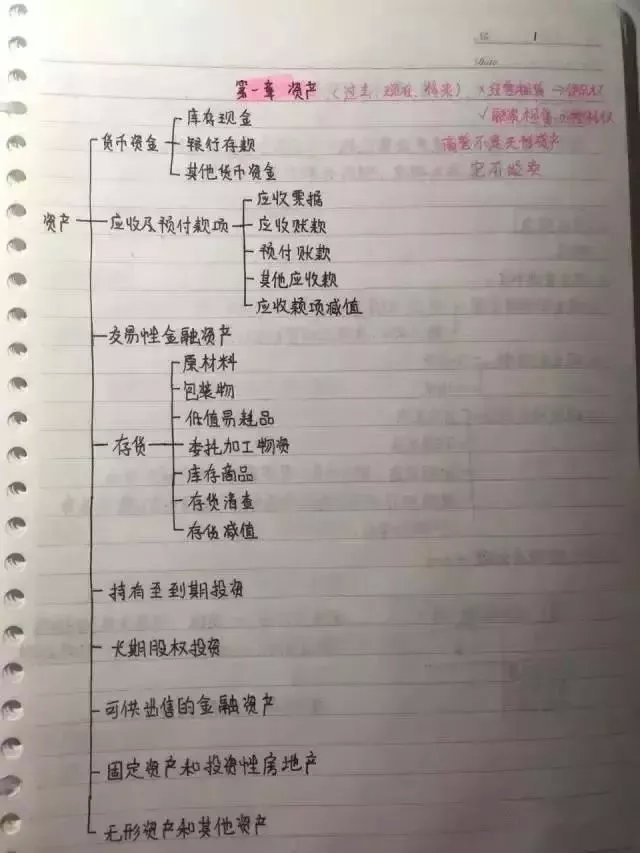 No 1
Date
第一章 资产 (过去、现在、将来) × 经营租赁 →使用权
√ 融资租赁 →控制权
商誉不是无形资产
货币资金
库存现金
银行存款
其他货币资金
资产
应收及预付款项
应收票据
应收账款
预付账款
其他应收款
应收款项减值
交易性金融资产
存货
原材料
包装物
低值易耗品
委托加工物资
库存商品
存货清查
存货减值
持有至到期投资
长期股权投资
可供出售的金融资产
固定资产和投资性房地产
无形资产和其他资产